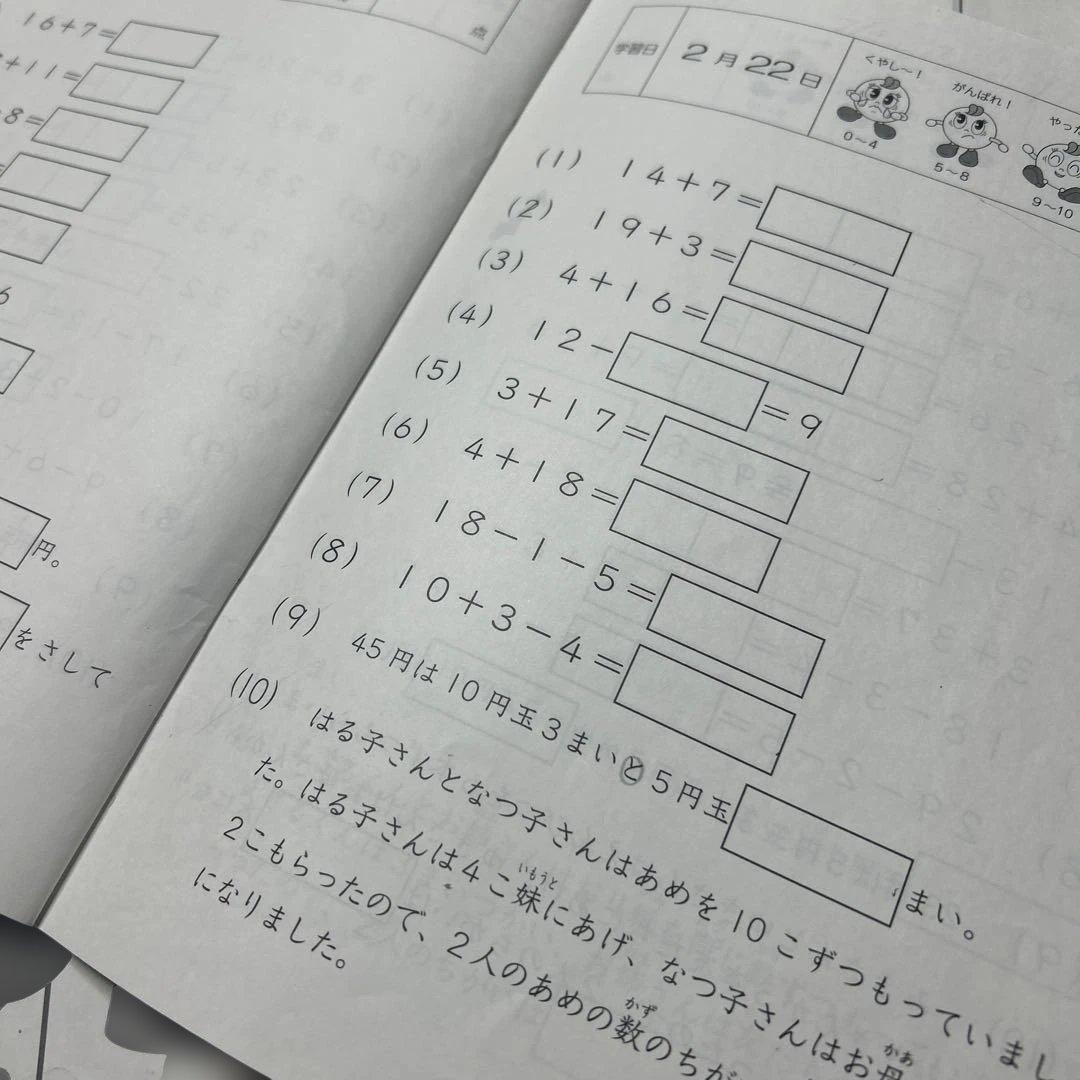 16+7=
+11=
8=
6
円。
をさして
点
学習日
2月22日
くやし〜！
0〜4
がんばれ！
5〜8
やった
9〜10
(1) 14+7=
(2) 19+3=
(3) 4+16=
(4) 12− =9
(5) 3+17=
(6) 4+18=
(7) 18−1−5=
(8) 10+3−4=
(9) 45円は10円玉3まいと5円玉 まい。
(10) はる子さんとなつ子さんはあめを10こずつもっていまし
た。はる子さんは4こ妹にあげ、なつ子さんはお母
いもうと
かあ
2こもらったので、2人のあめの数のちが
かず
になりました。